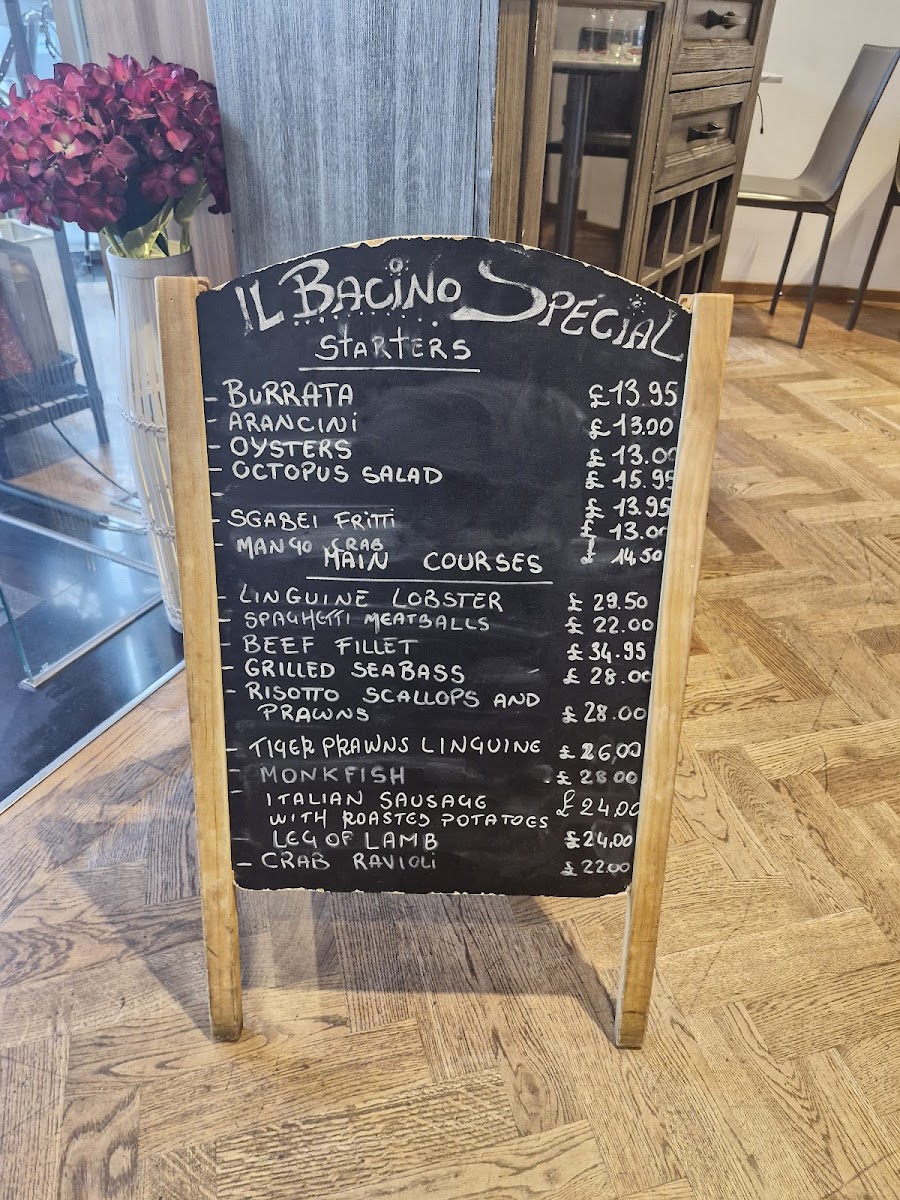 IL BACINO SPECIAL
STARTERS
- BURRATA £13.95
- ARANCINI £13.00
- OYSTERS £13.00
- OCTOPUS SALAD £15.95
- £13.95
- SGABEI FRITTI £13.00
- MANGO CRAB £14.50
MAIN COURSES
- LINGUINE LOBSTER £29.50
- SPAGHETTI MEATBALLS £22.00
- BEEF FILLET £34.95
- GRILLED SEABASS £28.00
- RISOTTO SCALLOPS AND
PRAWNS £28.00
- TIGER PRAWNS LINGUINE £26,00
- MONKFISH £28.00
- ITALIAN SAUSAGE
WITH ROASTED POTATOES £24,00
- LEG OF LAMB £24,00
- CRAB RAVIOLI £22.00